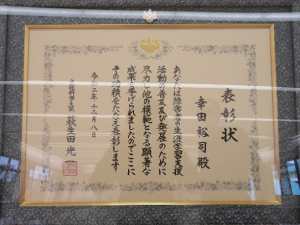 表彰状
幸田裕司殿
あなたは障害者の生涯学習支援
活動の普及及び発展のために
尽力し他の模範となる顕著な
成果を挙げられましたのでここに
その功績をたたえ表彰します
文部科学大臣 萩生田光一